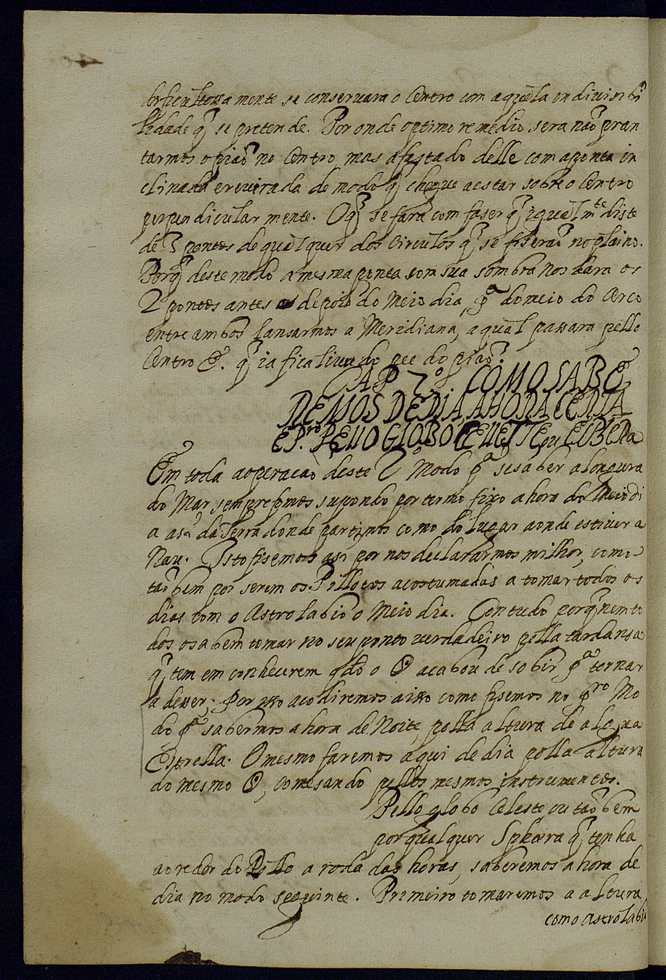 dificultozamente se conseruara o Centro com aquella indiuisibi
lidade q̃ se pretende. Por onde optimo remedio sera não pran
tarmos o pião no Centro, mas afastado delle com a ponta in
clinada e reuirada de modo q̃ chegue a estar sobre o Centro
perpendicularmente. O q̃ se fara com faser q̃ igualmte diste
de 3 pontos de qualquer dos Circulos q̃ se fiserão no plaino.
Porq̃ deste modo a mesma ponta com sua sombra nos dara os
2 pontos antes e depois do Meio dia, pª do meio do Arco
entre ambos lansarmos a Meridiana, a qual passara pello
Centro &. q̃ ia fica liure do pee do pião.
CAP 7º. COMO SABE
REMOS DE DIA A HORA CERTA
E Pro PELLO GLOBO CELESTE ou ESPHERA
Em toda a operação deste 2º Modo pª se saber a longura
do Mar sempre fomos supondo por termo fixo a hora do Meio di
a asi da Terra donde partimos como do lugar aonde estiuer a
Nau. Isto fisemos asi por nos declararmos milhor, como
tãobem por serem os Pillotos acostumados a tomar todos os
dias com o Astrolabio o Meio dia. Contudo porq̃ nem to
dos o sabem tomar no seu ponto uerdadeiro polla tardansa
q̃ tem em conhecerem qdo o ☉ acabou de sobir pª tornar
a desser; Por isso acodiremos a isso como fisemos no pro Mo
do pª sabermos a hora de Noite polla altura de algũa
Estrella. O mesmo faremos aqui de dia polla altura
do mesmo ☉, comesando pellos mesmos instrumentos.
Pello globo Celeste ou tãobem
por qualquer Sphera q̃ tenha
ao redor do Pollo a roda das horas, saberemos a hora de
dia no modo seguinte. Primeiro tomaremos a altura
com o Astrolabio